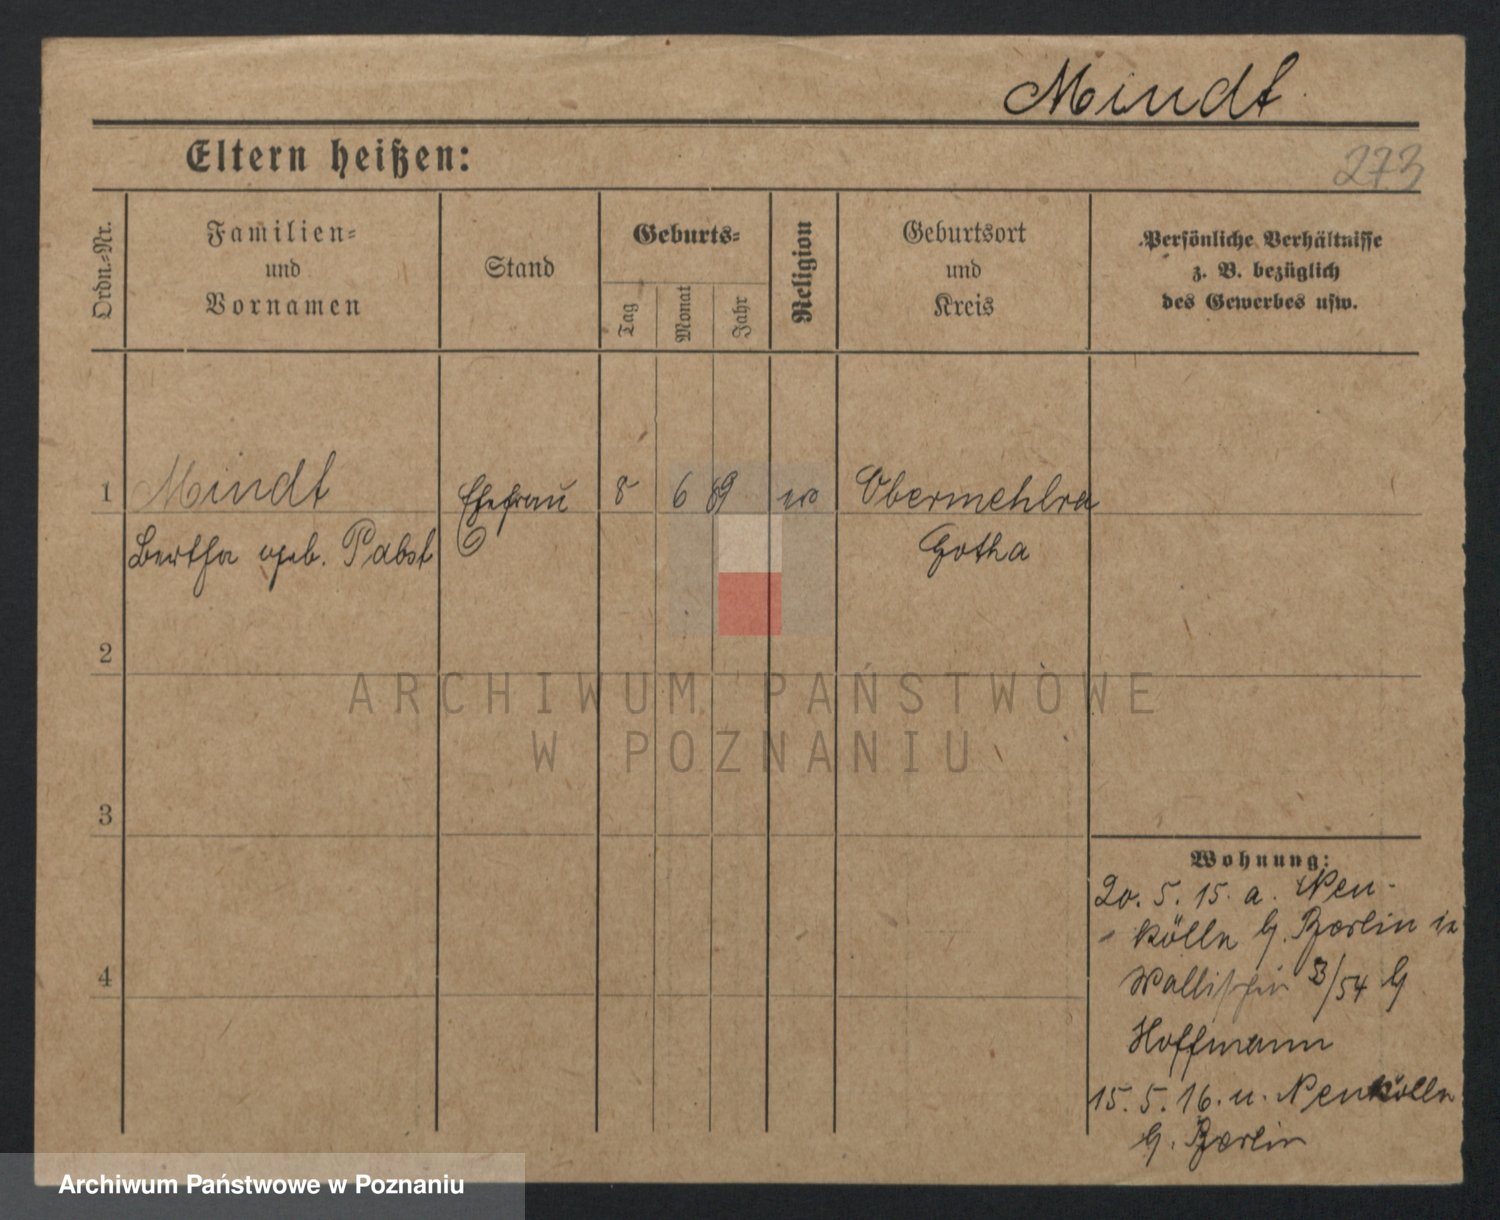 Mindt
Eltern heißen:
273
Ordn.-Nr.
Familien-
und
Vornamen
Stand
Geburts-
Tag
Monat
Jahr
Religion
Geburtsort
und
Kreis
Persönliche Verhältnisse
z. B. bezüglich
des Gewerbes usw.
1 Mindt Ehefrau 8 6 89 Obermehlra
Bertha geb. Pabst Gotha
2
3
4
Wohnung:
20. 5. 15. a. Neu-
kölln b. Berlin in
Wallischei 3/54 b
Hoffmann
15. 5. 16. u. Neukölln
b. Berlin
ARCHIWUM PAŃSTWOWE
W POZNANIU
Archiwum Państwowe w Poznaniu